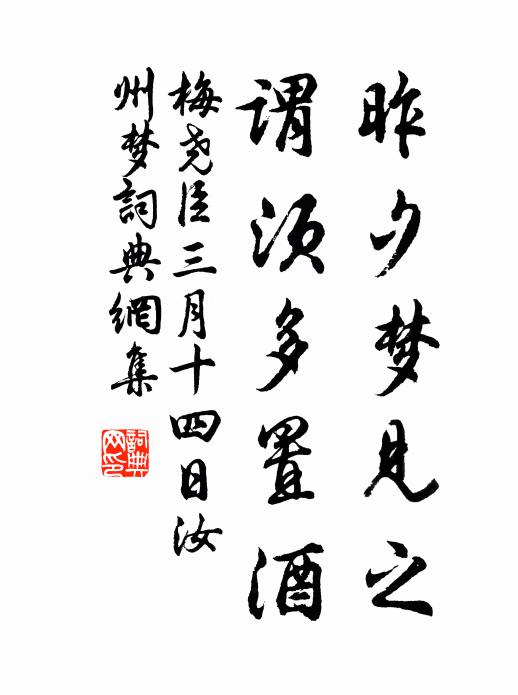 昨夕梦见之
谓须多置酒
梅尧臣三月十四日汝
州梦词典網集
詞典
网印